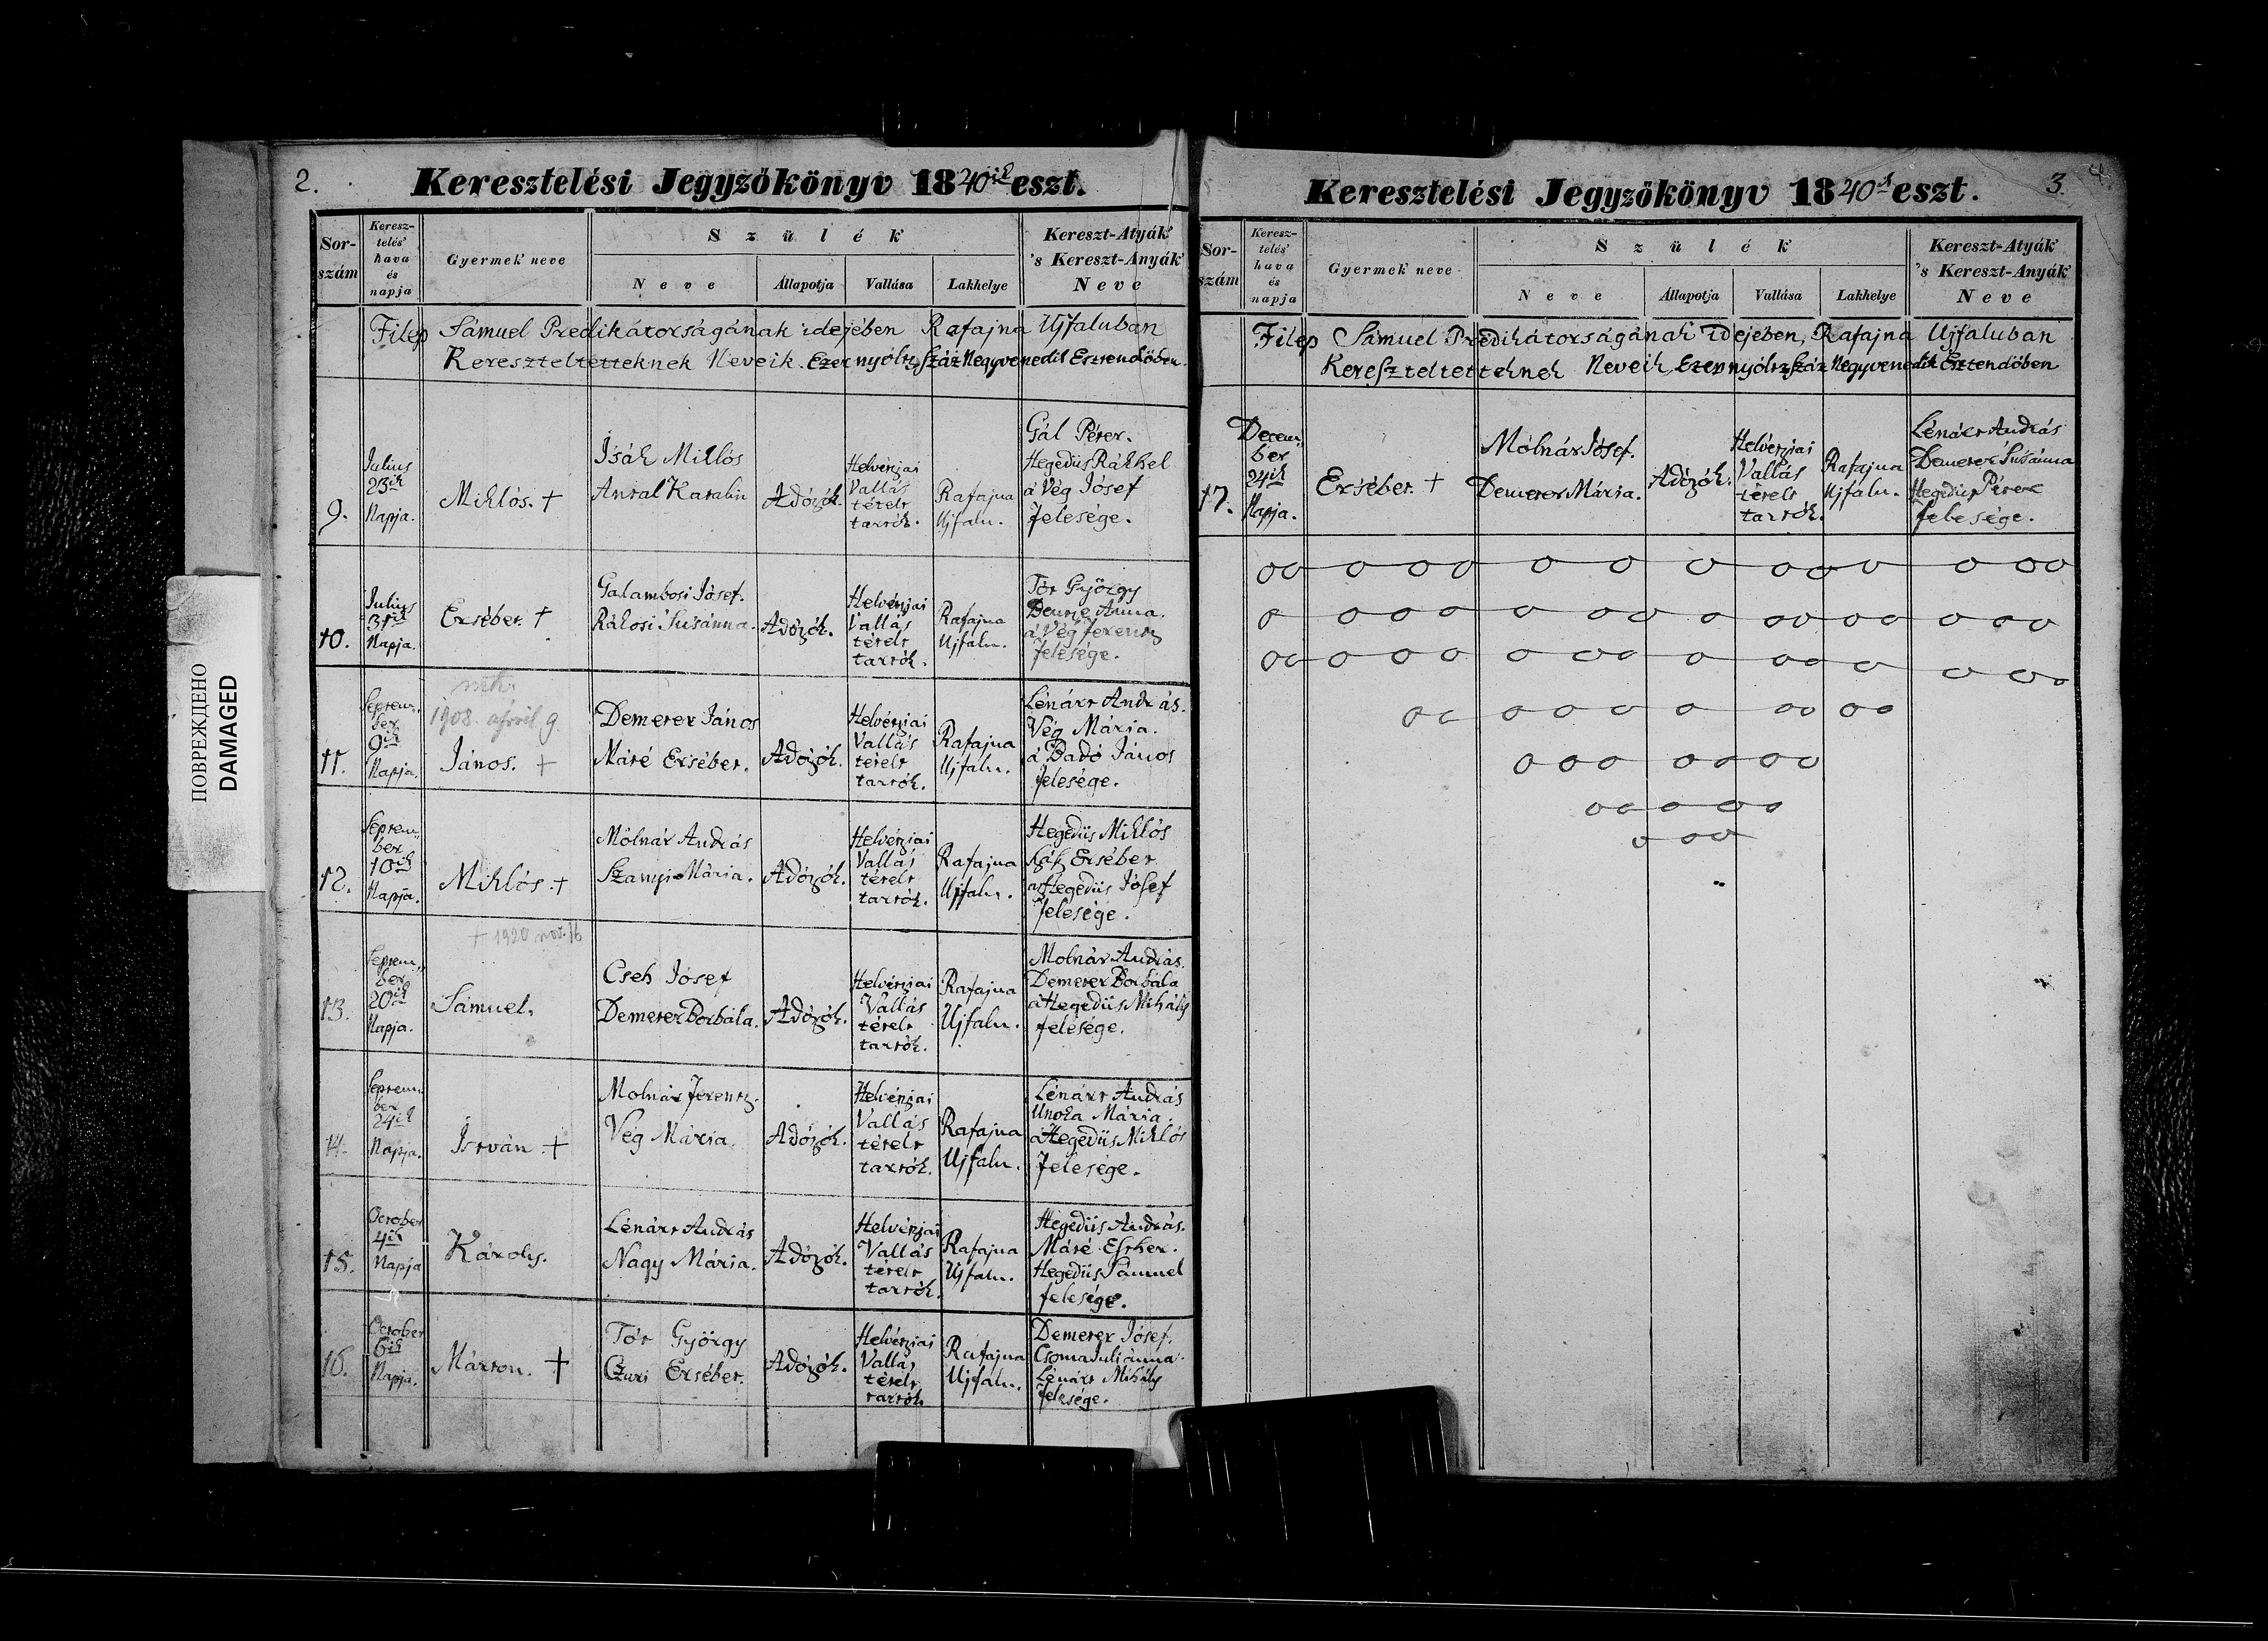 2.
Keresztelési Jegyzőkönyv 1840ik eszt.
Sor-
szám
Keresz-
telés'
hava
és
napja
Gyermek neve
Szülék
Neve
Állapotja
Vallása
Lakhelye
Kereszt-Atyák
's Kereszt-Anyák
Neve
Filep Sámuel Predikátorságának idejében Rafajna Ujfaluban
Kereszteltetteknek Neveik. Ezer nyóltz Száz Negyvenedik Esztendőben.
9.
Julius
23ik
Napja.
Miklós. +
Isák Miklós
Antal Katalin
Adózók.
Helvétziai
Vallás
tételt
tartók.
Rafajna
Ujfalu.
Gál Péter.
Hegedüs Rákhel
á Vég Jósef
felesége.
10.
Julius
31ik
Napja.
Ersébet. +
Galambosi Jósef.
Rákosi Susánna.
Adózók.
Helvétziai
Vallás
tételt
tartók.
Rafajna
Ujfalu.
Tót György
Anna.
á Vég Ferentz
felesége.
11.
Septem„
ber
9ik
Napja.
1908. april 9
János. +
Demeter János
Máté Ersébet.
Adózók.
Helvétziai
Vallás
tételt
tartók.
Rafajna
Ujfalu.
Lénárt András.
Vég Mária.
á Badó János
felesége.
12.
Septem„
ber
10ik
Napja.
Miklós. +
Mólnár András
Szanyi Mária.
Adózók.
Helvétziai
Vallás
tételt
tartók.
Rafajna
Ujfalu.
Hegedüs Miklós
Ersébet
a Hegedüs Jósef
felesége.
13.
Septem„
ber
20ik
Napja.
+ 1920 nov. 16
Sámuel.
Cseh Jósef
Demeter Borbála.
Adózók.
Helvétziai
Vallás
tételt
tartók.
Rafajna
Ujfalu.
Molnár András.
Demeter Borbála
á Hegedüs Mihály
felesége.
14.
Septem„
ber
24ik
Napja.
István. +
Molnár Ferentz.
Vég Mária.
Adózók.
Helvétziai
Vallás
tételt
tartók.
Rafajna
Ujfalu.
Lénárt András
Unoka Mária.
á Hegedüs Miklós
felesége.
15.
October
4ik
Napja
Károly.
Lénárt András
Nagy Mária.
Adózók.
Helvétziai
Vallás
tételt
tartók.
Rafajna
Ujfalu.
Hegedüs András.
Máté Esther.
Hegedüs Sámuel
felesége.
16.
October
6ik
Napja.
Márton. +
Tót György
Czuri Ersébet.
Adózók.
Helvétziai
Vallás
tételt
tartók
Rafajna
Ujfalu.
Demeter Jósef.
Csoma Juliánna.
Lénárt Mihály
felesége.
Keresztelési Jegyzőkönyv 1840k eszt.
3.
Sor-
szám
Keresz-
telés'
hava
és
napja
Gyermek neve
Szülék
Neve
Állapotja
Vallása
Lakhelye
Kereszt-Atyák
's Kereszt-Anyák
Neve
Filep Sámuel Prédikátorságának idejében, Rafajna Ujfaluban
Kereszteltetteknek Neveik, Ezer nyóltz száz Negyvenedik Esztendőben
17.
Decem„
ber
24ik
Napja.
Ersébet. +
Mólnár Jósef.
Demeter Mária.
Adózók.
Helvétziai
Vallás
tételt
tartók.
Rafajna
Ujfalu.
Lénárt András
Demeter Susánna
Hegedüs Péter
felesége.
ПОВРЕЖДЕНО
DAMAGED